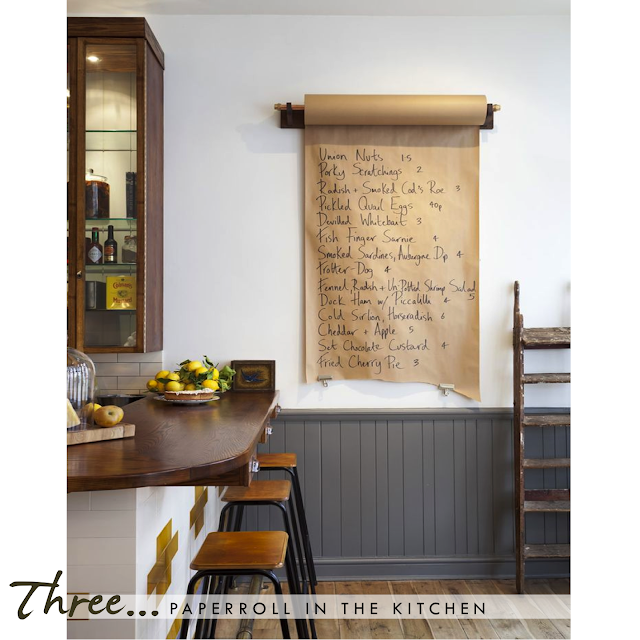 Union Nuts 15
Porky Scratchings 2
Radish + Smoked Cod's Roe 3
Pickled Quail Eggs 40p
Devilled Whitebait 3
Fish Finger Sarnie 4
Smoked Sardines, Aubergine Dip 4
Trotter-Dog 4
Fennel, Radish + Un-Potted Shrimp Salad 5
Duck Ham w/ Piccalilli 4
Cold Sirloin, Horseradish 6
Cheddar + Apple 5
Set Chocolate Custard 4
Fried Cherry Pie 3
Three... PAPERROLL IN THE KITCHEN